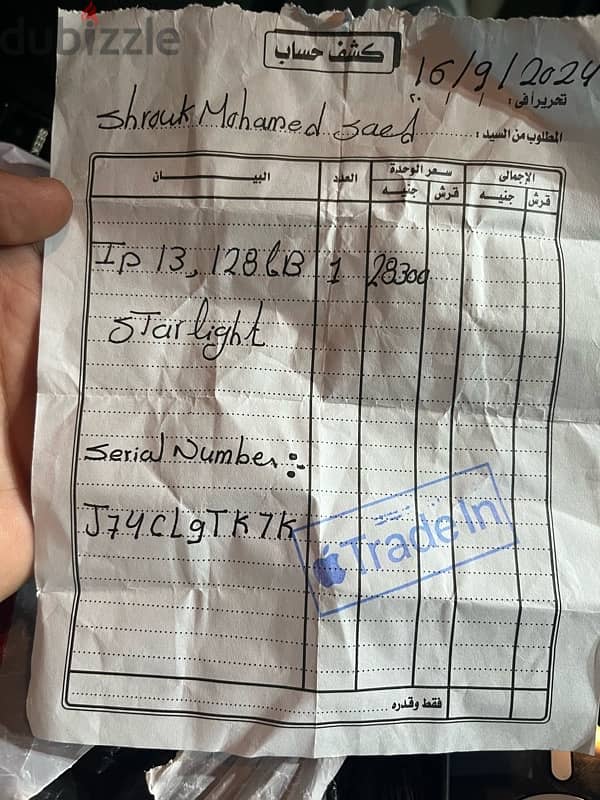 dubizzle
كشف حساب
16/9/2024
تحريراً فى : ٢٠
المطلوب من السيد : Shrouk Mohamed Saed
البيـــــان العدد سعر الوحدة الإجمالى
جنيه قرش جنيه قرش
Ip 13, 128 GB 1 28300
Starlight
Serial Number :-
J74CLgTK7K
Trade In
فقط وقدره